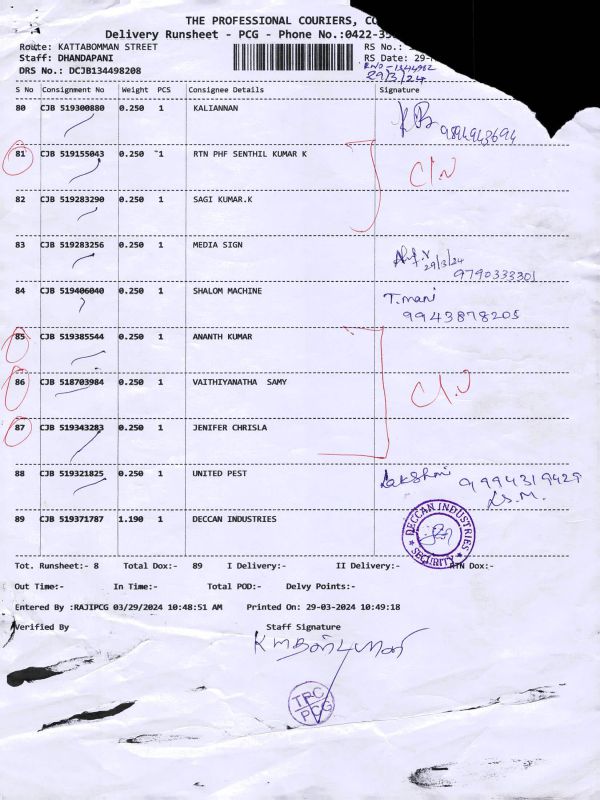 THE PROFESSIONAL COURIERS, CO
Delivery Runsheet - PCG - Phone No.:0422-35
Route: KATTABOMMAN STREET RS No.:
Staff: DHANDAPANI RS Date: 29-
DRS No.: DCJB134498208
29/3/24
S No Consignment No Weight PCS Consignee Details Signature
80 CJB 519300880 0.250 1 KALIANNAN
9894943694
81 CJB 519155043 0.250 1 RTN PHF SENTHIL KUMAR K
82 CJB 519283290 0.250 1 SAGI KUMAR.K
83 CJB 519283256 0.250 1 MEDIA SIGN
29/3/24
9790333301
84 CJB 519406040 0.250 1 SHALOM MACHINE T.mani
9943878205
85 CJB 519385544 0.250 1 ANANTH KUMAR
86 CJB 518703984 0.250 1 VAITHIYANATHA SAMY
87 CJB 519343283 0.250 1 JENIFER CHRISLA
88 CJB 519321825 0.250 1 UNITED PEST Lakshmi 9994319429
89 CJB 519371787 1.190 1 DECCAN INDUSTRIES
DECCAN INDUSTRIES
SECURITY
Tot. Runsheet:- 8 Total Dox:- 89 I Delivery:- II Delivery:- RTN Dox:-
Out Time:- In Time:- Total POD:- Delvy Points:-
Entered By :RAJIPCG 03/29/2024 10:48:51 AM Printed On: 29-03-2024 10:49:18
Verified By Staff Signature
TPC
PCG